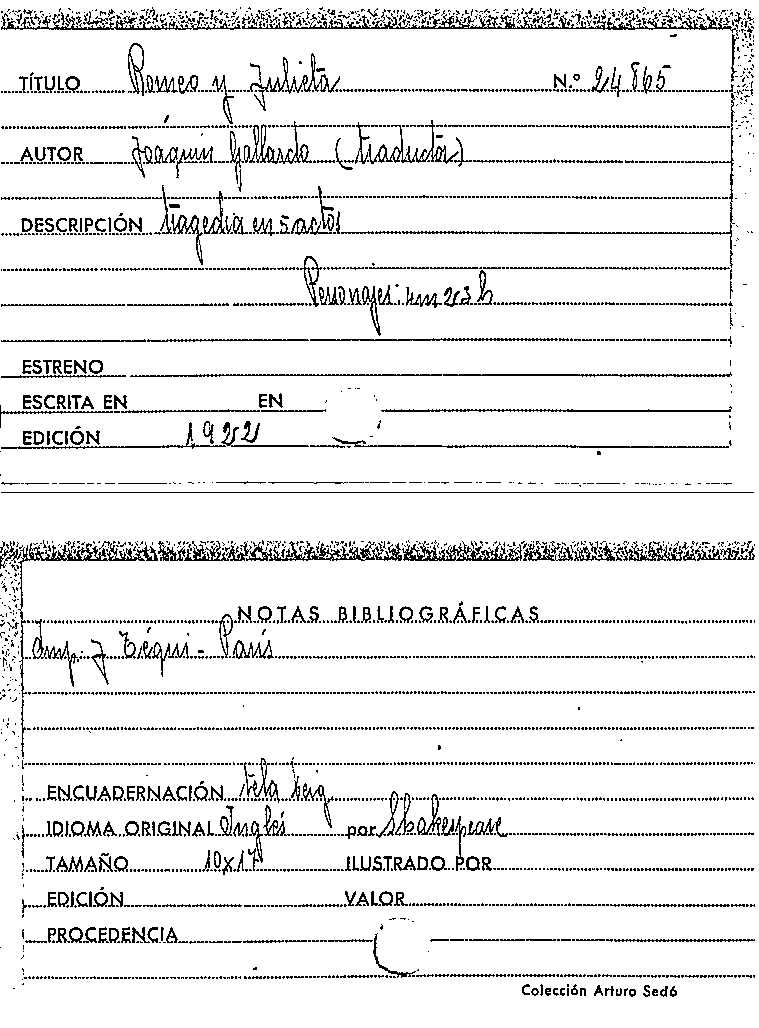 TÍTULO Romeo y Julieta N.º 24865
AUTOR Joaquín Gallardo (traductor)
DESCRIPCIÓN tragedia en 5 actos
Personajes: 4m 23 h
ESTRENO
ESCRITA EN EN
EDICIÓN 1922
NOTAS BIBLIOGRÁFICAS
Imp. J Téqui - París
ENCUADERNACIÓN tela beig
IDIOMA ORIGINAL Inglés por Shakespeare
TAMAÑO 10x17 ILUSTRADO POR
EDICIÓN VALOR
PROCEDENCIA
Colección Arturo Sedó